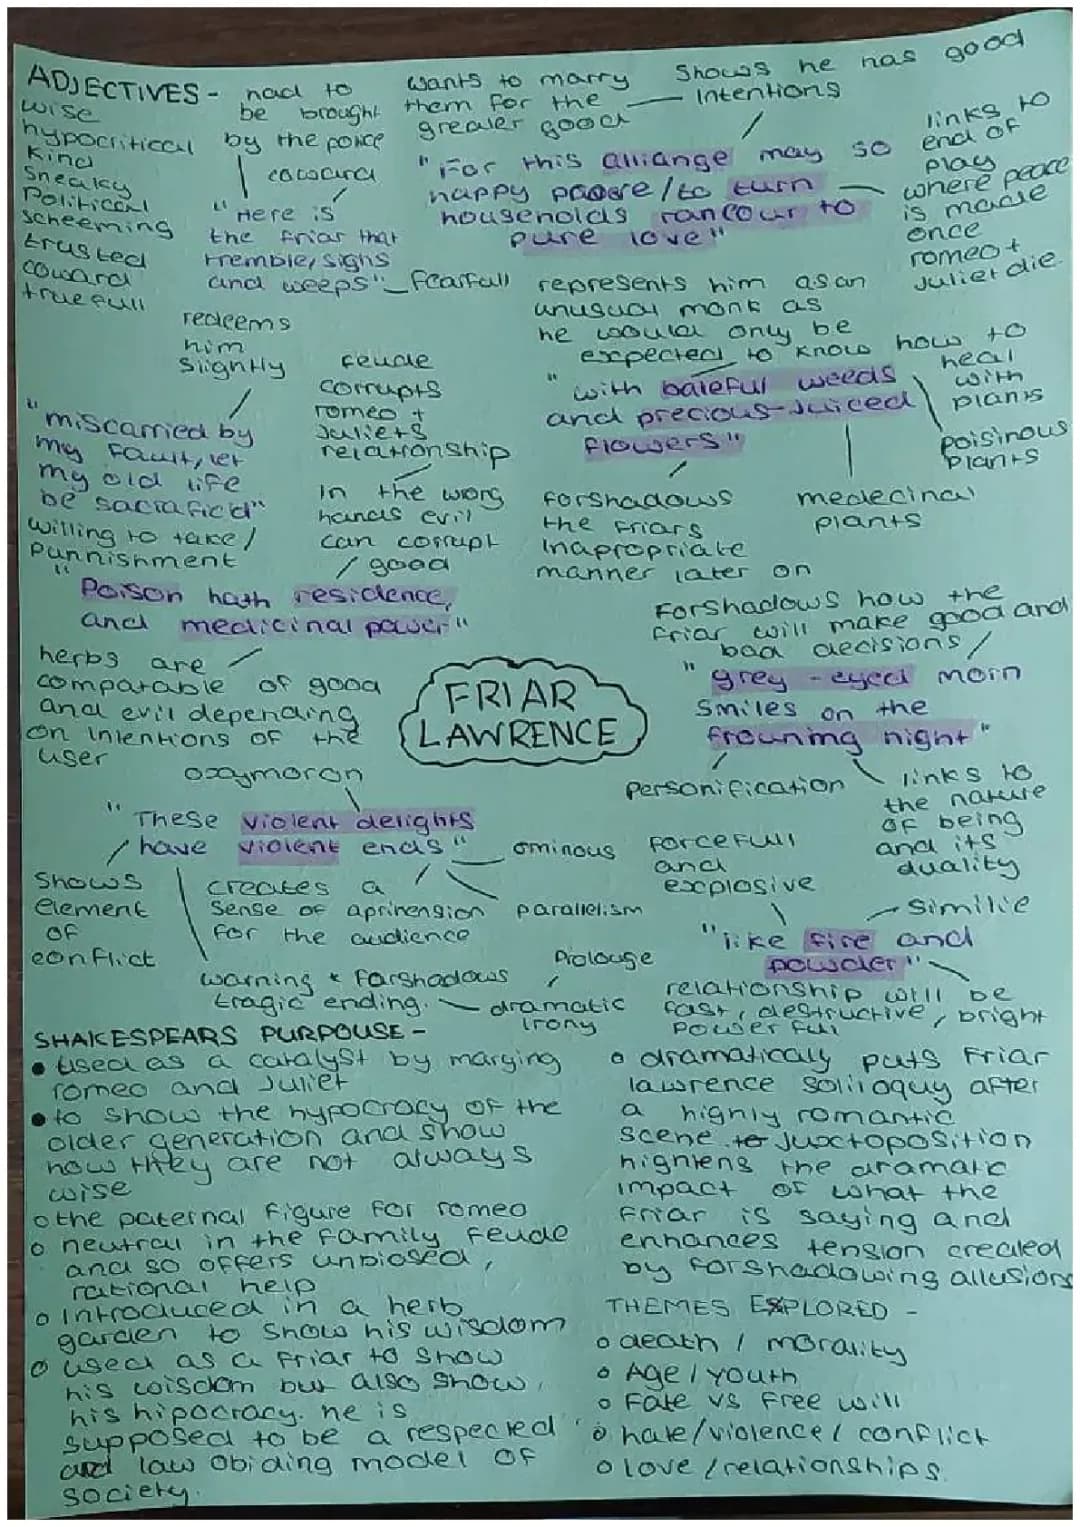 ADJECTIVES -
wise
hypocritical
Kind
Sneaky
Political
scheeming
trusted
coward
truefull
had to
be brought
by the police
coward
"Here is
the friar that
tremble, sighs
and weeps" _ fearfull
wants to marry
them for the
greater good
Shows he has good
Intentions
"For this alliange may so
happy proove / to turn
households rancour to
pure love"
links to
end of
play
where peace
is made
once
romeo +
Juliet die.
redeems
him
Slightly
"miscarried by
my fault, let
my old life
be sacraficed"
willing to take
punnishment
feude
corrupts
romeo +
Juliets
relationship
In the wrong
hands evil
can corrupt
good
represents him as an
unusual monk as
he would only be
expected to know how to
heal
with
plants
"with baleful weeds
and precious-Juiced
flowers"
poisinous
plants
medecinal
plants
forshadows
the friars
Inapropriate
manner later on
"Poison hath residence,
and medicinal power"
herbs are
comparable of good
and evil depending
on intentions of the
user
FRIAR
LAWRENCE
Forshadows how the
friar will make good and
bad decisions
"grey - eyed morn
Smiles on the
frowning night"
Personification
links to
the nature
of being
and its
duality
oxymoron
"These violent delights
have violent ends"
ominous
parallelism
Shows
element
of
conflict
creates a
Sense of aprihension
for the audience
warning & farshadows
tragic ending.
dramatic
irony
Prolouge
forcefull
and
explosive
Similie
"like fire and
powder"
relationship will be
fast, destructive, bright
powerfull
SHAKESPEARS PURPOUSE -
• used as a catalyst by marying
romeo and Juliet
• to show the hypocracy of the
older generation and show
how they are not always
wise
o the paternal figure for romeo
o neutral in the family feude
and so offers unbiosed,
rational help
o Introduced in a herb
garden to show his wisdom
o used as a friar to show
his wisdom but also show
his hipocracy. he is
supposed to be a respected
and law obiding model of
society.
o dramaticaly puts Friar
lawrence soliloquy after
a highly romantic
scene to Juxctoposition
hightens the dramatic
impact of what the
friar is saying and
enhances tension created
by forshadowing allusions
THEMES EXPLORED -
o death / morality
o Age / youth
o Fate vs free will
o hate/violence / conflict
o love /relationships.